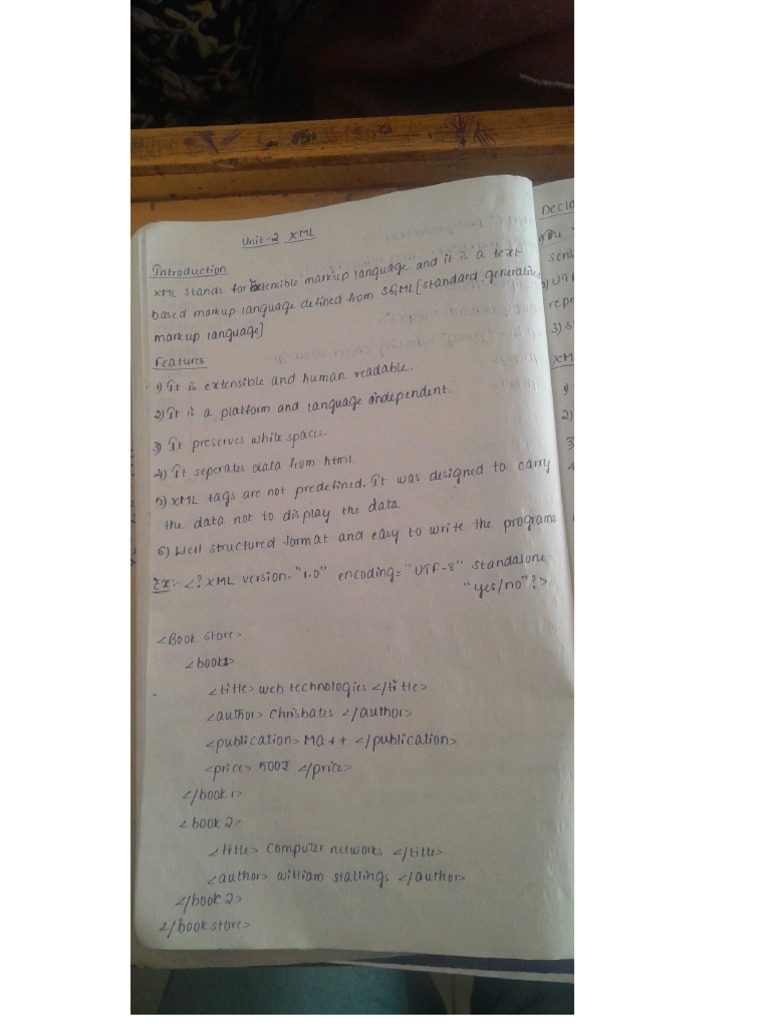 Unit-2 XML
Introduction
XML stands for Extensible markup language and it is a text-
based markup language defined from SGML [standard generalised
markup language]
Features
1) It is extensible and human readable.
2) It is a platform and language independent.
3) It preserves white spaces.
4) It seperates data from html.
5) XML tags are not predefined. It was designed to carry
the data not to display the data
6) Well structured format and easy to write the programs
Ex:- <?XML version="1.0" encoding="UTF-8" standalone=
"yes/no"?>
<Book Store>
<book1>
<title> web technologies </title>
<author> Chrisbates </author>
<publication> MA++ </publication>
<price> 500₹ </price>
</book1>
<book 2>
<title> Computer networks </title>
<author> william stallings </author>
</book 2>
</book.store>
Decla
1) The
sens
2) UTF
repr
3) S
XM
1)
2)
3)